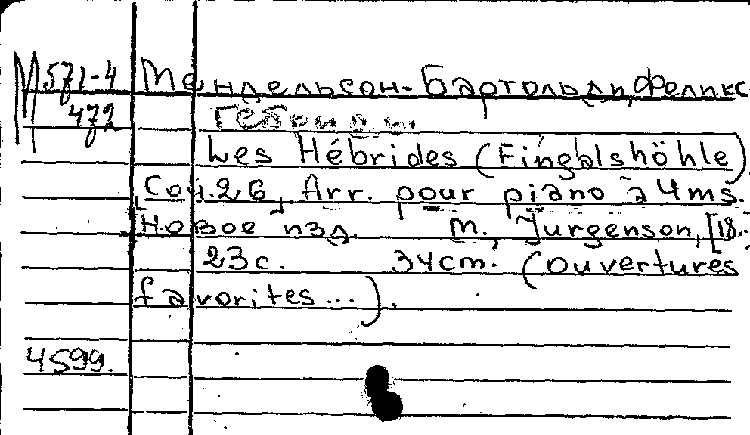 М 571-4 Мендельсон-Бартольди, Феликс
472 Гебриды.
Les Hébrides (Fingalshöhle)
Соч. 26, Arr. pour piano à 4 ms.
Новое изд. М., Jurgenson, [18..
23 с. 34 cm. (Ouvertures
favorites...).
4599.